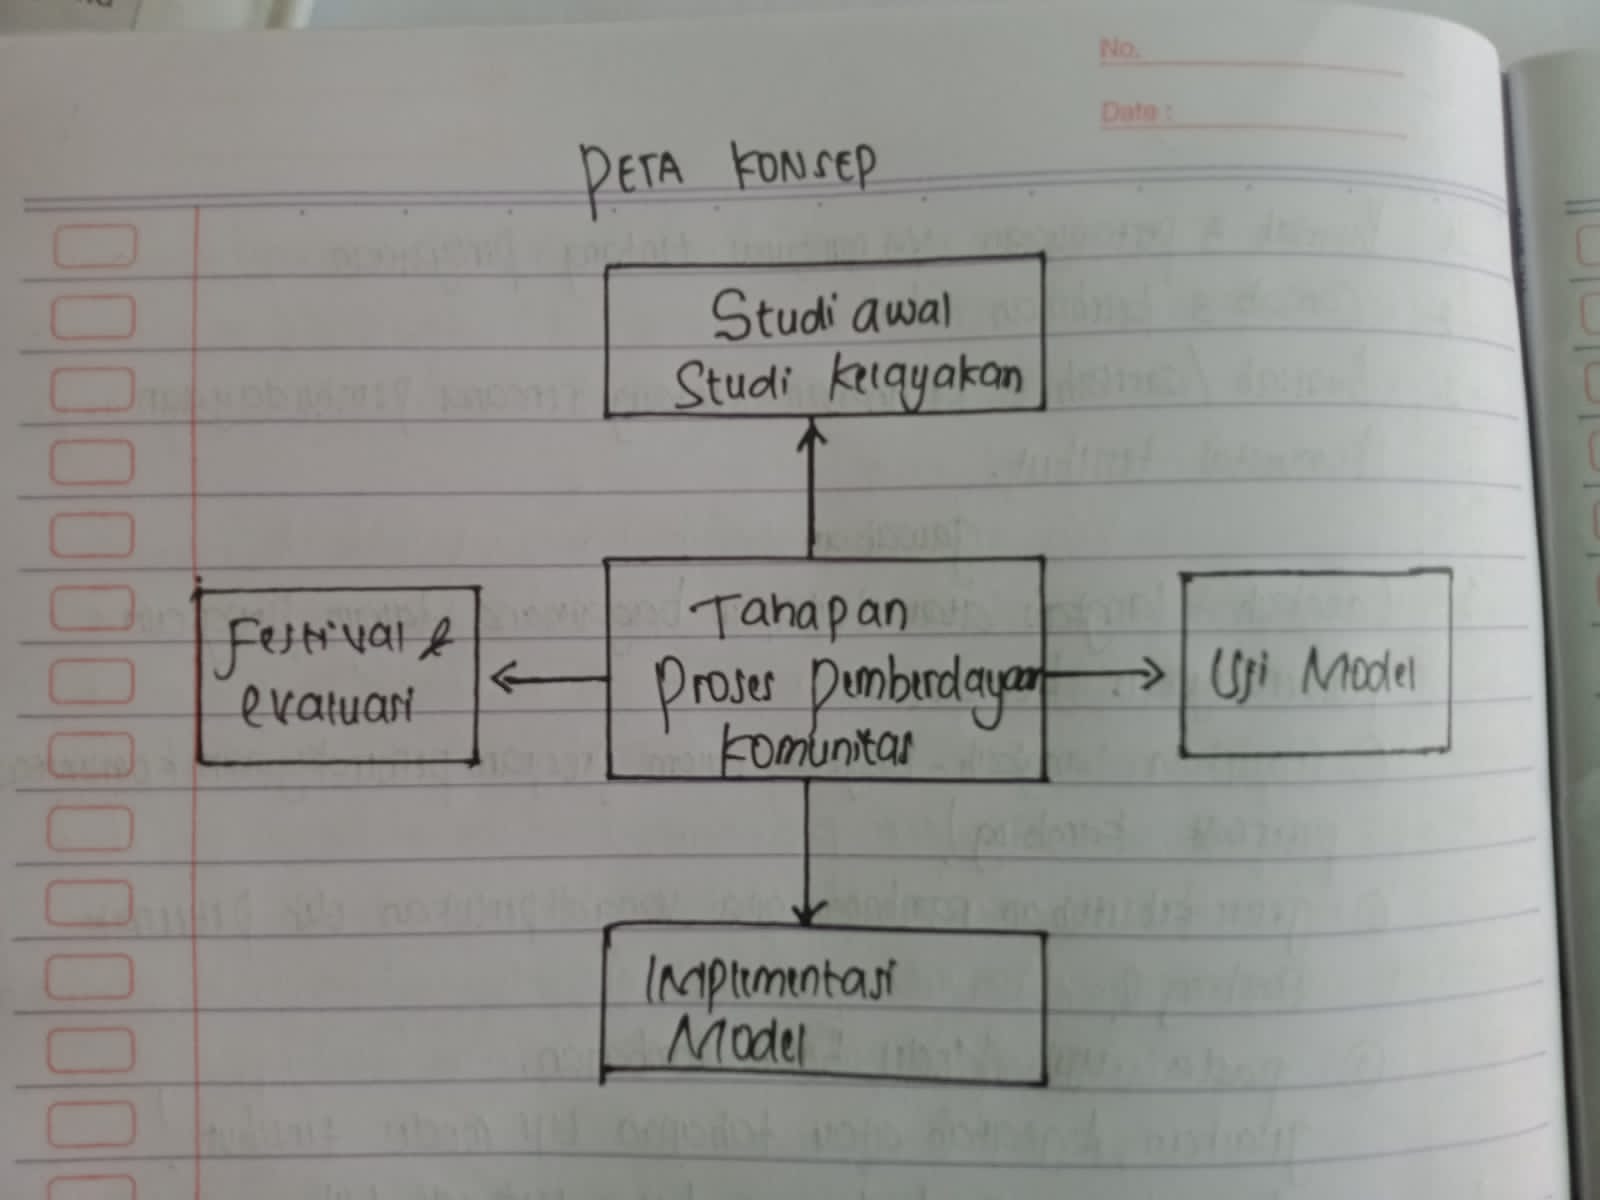 No.
Date :
PETA KONSEP
Studi awal
Studi Kelayakan
Festival &
evaluasi
Tahapan
Proses Pemberdayaan
Komunitas
Uji Model
Implementasi
Model